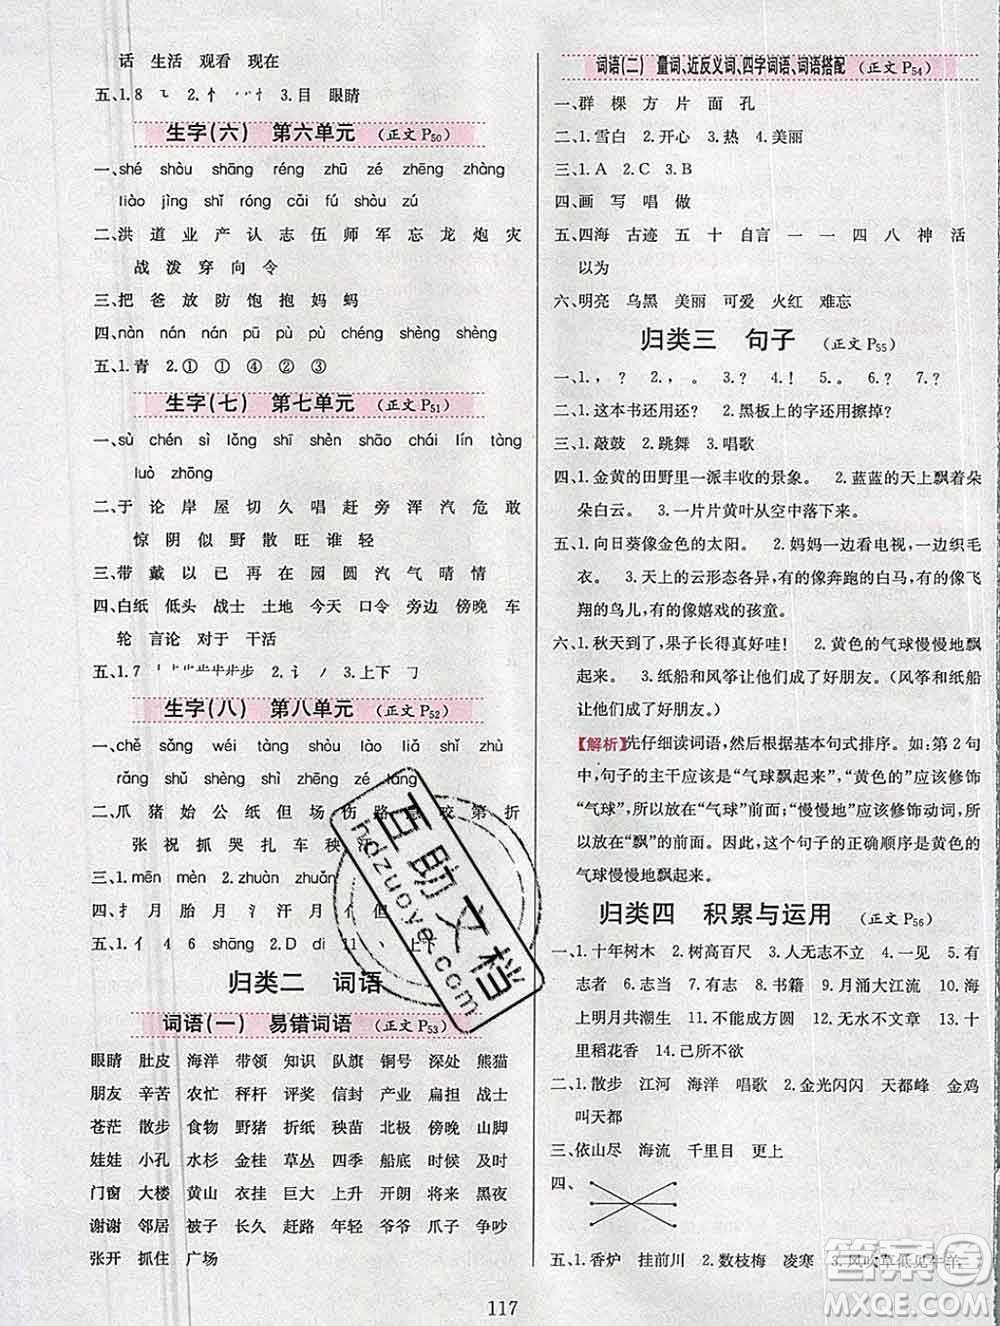 话 生活 观看 现在
五、1.8 ㇈ 2.忄 丶丶忄 3.目 眼睛
生字(六) 第六单元 (正文 P50)
一、shé shòu shāng réng zhū zé zhēng zhàng
liào jìng shǐ róng cǎi fú shòu zú
二、洪 道 业 产 认 志 伍 师 军 忘 龙 炮 灾
战 泼 穿 向 令
三、把 爸 放 防 饱 抱 妈 蚂
四、nàn nán nán pū pù pù chéng shèng shèng
五、1.青 2.① ① ④ ② ③
生字(七) 第七单元 (正文 P51)
一、sù chén sì lǒng shī shèn shāo chái lín tàng
luò zhōng
二、于 论 岸 屋 切 久 唱 赶 旁 浑 汽 危 敢
惊 阴 似 野 散 旺 谁 轻
三、带 戴 以 已 再 在 园 圆 汽 气 晴 情
四、白纸 低头 战士 土地 今天 口令 旁边 傍晚 车
轮 言论 对于 干活
五、1.7 2.讠 丿 3.上下 ㇆
生字(八) 第八单元 (正文 P52)
一、chě sǎng wéi tàng shòu lào liǎ shǐ zhù
rǎng shǔ shèng shāng zé lóng
二、爪 猪 始 公 纸 但 场 伤 路 咬 第 折
张 祝 抓 哭 扎 车 秧
三、1.màn mán 2.zhuàn zhuǎn
四、扌 月 胎 氵 汗 月 亻
五、1.亻 4 6 shāng 2.D di 11 丶
归类二 词语
词语(一) 易错词语 (正文 P53)
眼睛 肚皮 海洋 带领 知识 队旗 铜号 深处 熊猫
朋友 辛苦 农忙 秤杆 评奖 信封 产业 扁担 战士
苍茫 散步 食物 野猪 折纸 秧苗 北极 傍晚 山脚
娃娃 小孔 水杉 金桂 草丛 四季 船底 时候 及时
门窗 大楼 黄山 衣挂 巨大 上升 开朗 棉鞋 黑夜
谢谢 邻居 被子 长久 赶路 年轻 爷爷 爪子 争吵
张开 抓住 广场
词语(二) 量词、近反义词、四字词语、词语搭配 (正文 P54)
一、群 棵 方 片 面 孔
二、1.雪白 2.开心 3.热 4.美丽
三、1.A 2.C 3.B
四、画 写 唱 做
五、四海 古迹 五 十 自言 一 一 四 八 神 活
以为
六、明亮 乌黑 美丽 可爱 火红 难忘
归类三 句子 (正文 P55)
一、1.，？ 2.，。 3.？ 4.！ 5.。 6.， 7.？
二、1.这本书还用还？ 2.黑板上的字还用擦掉？
三、1.敲鼓 2.跳舞 3.唱歌
四、1.金黄的田野里一派丰收的景象。 2.蓝蓝的天上飘着朵
朵白云。 3.一片片黄叶从空中落下来。
五、1.向日葵像金色的太阳。 2.妈妈一边看电视，一边织毛
衣。 3.天上的云形态各异，有的像奔跑的白马，有的像飞
翔的鸟儿，有的像嬉戏的孩童。
六、1.秋天到了，果子长得真好哇！ 2.黄色的气球慢慢地飘
起来。 3.纸船和风筝让他们成了好朋友。（风筝和纸船
让他们成了好朋友。）
【解析】先仔细读词语，然后根据基本句式排序。如：第 2 句
中，句子的主干应该是“气球飘起来”，“黄色的”应该修饰
“气球”，所以放在“气球”前面；“慢慢地”应该修饰动词，
所以放在“飘”的前面。因此，这个句子的正确顺序是黄色的
气球慢慢地飘起来。
归类四 积累与运用 (正文 P56)
一、1.十年树木 2.树高百尺 3.人无志不立 4.一见 5.有
志者 6.志坚 7.志高 8.书籍 9.月涌大江流 10.海
上明月共潮生 11.不能成方圆 12.无水不文章 13.十
里稻花香 14.己所不欲
二、1.散步 江河 海洋 唱歌 2.金光闪闪 天都峰 金鸡
叫天都
三、依山尽 海流 千里目 更上
四、
五、1.香炉 挂前川 2.数枝梅 凌寒 3.风吹草低见牛羊
117
互助文档
hdzuoye.com
答案圈
MXQE.COM